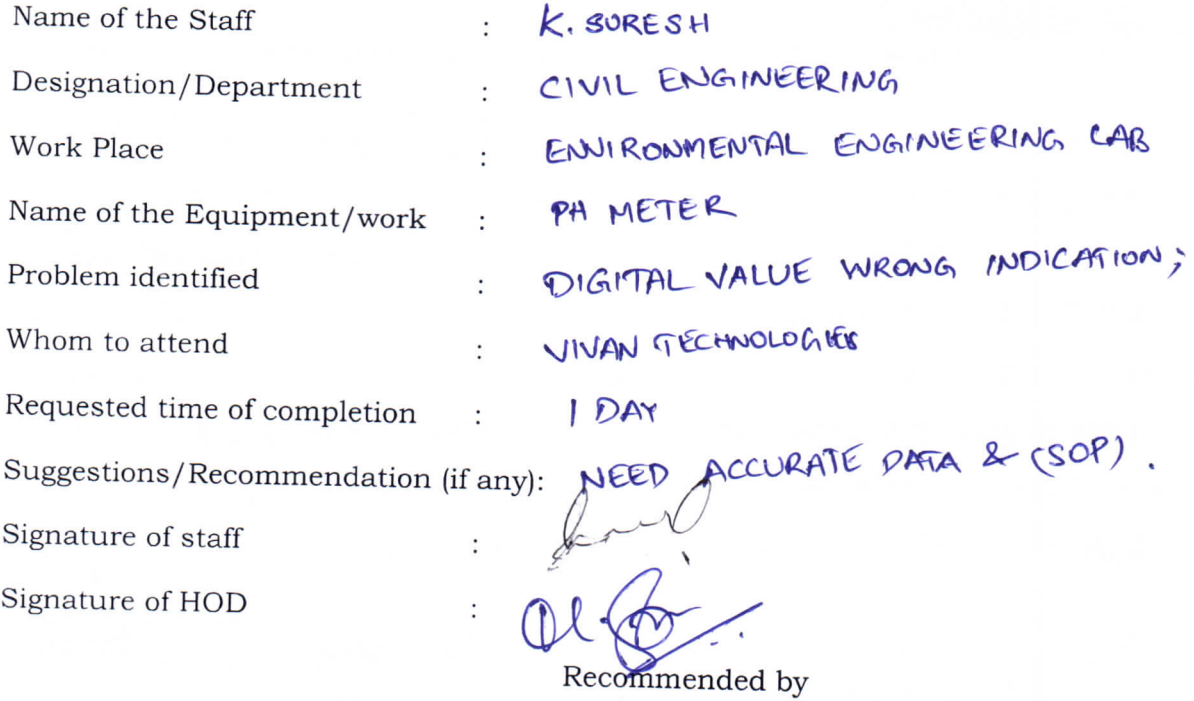 Name of the Staff : K. SURESH
Designation/Department : CIVIL ENGINEERING
Work Place : ENVIRONMENTAL ENGINEERING LAB
Name of the Equipment/work : PH METER
Problem identified : DIGITAL VALUE WRONG INDICATION;
Whom to attend : VIVAN TECHNOLOGIES
Requested time of completion : 1 DAY
Suggestions/Recommendation (if any): NEED ACCURATE DATA & (SOP).
Signature of staff :
Signature of HOD :
Recommended by